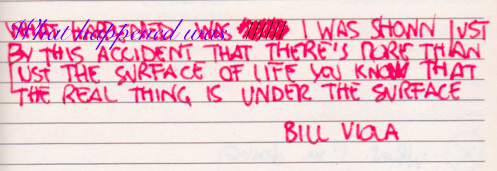 What happened was I WAS SHOWN JUST
BY THIS ACCIDENT THAT THERE'S MORE THAN
JUST THE SURFACE OF LIFE YOU KNOW THAT
THE REAL THING IS UNDER THE SURFACE
BILL VIOLA